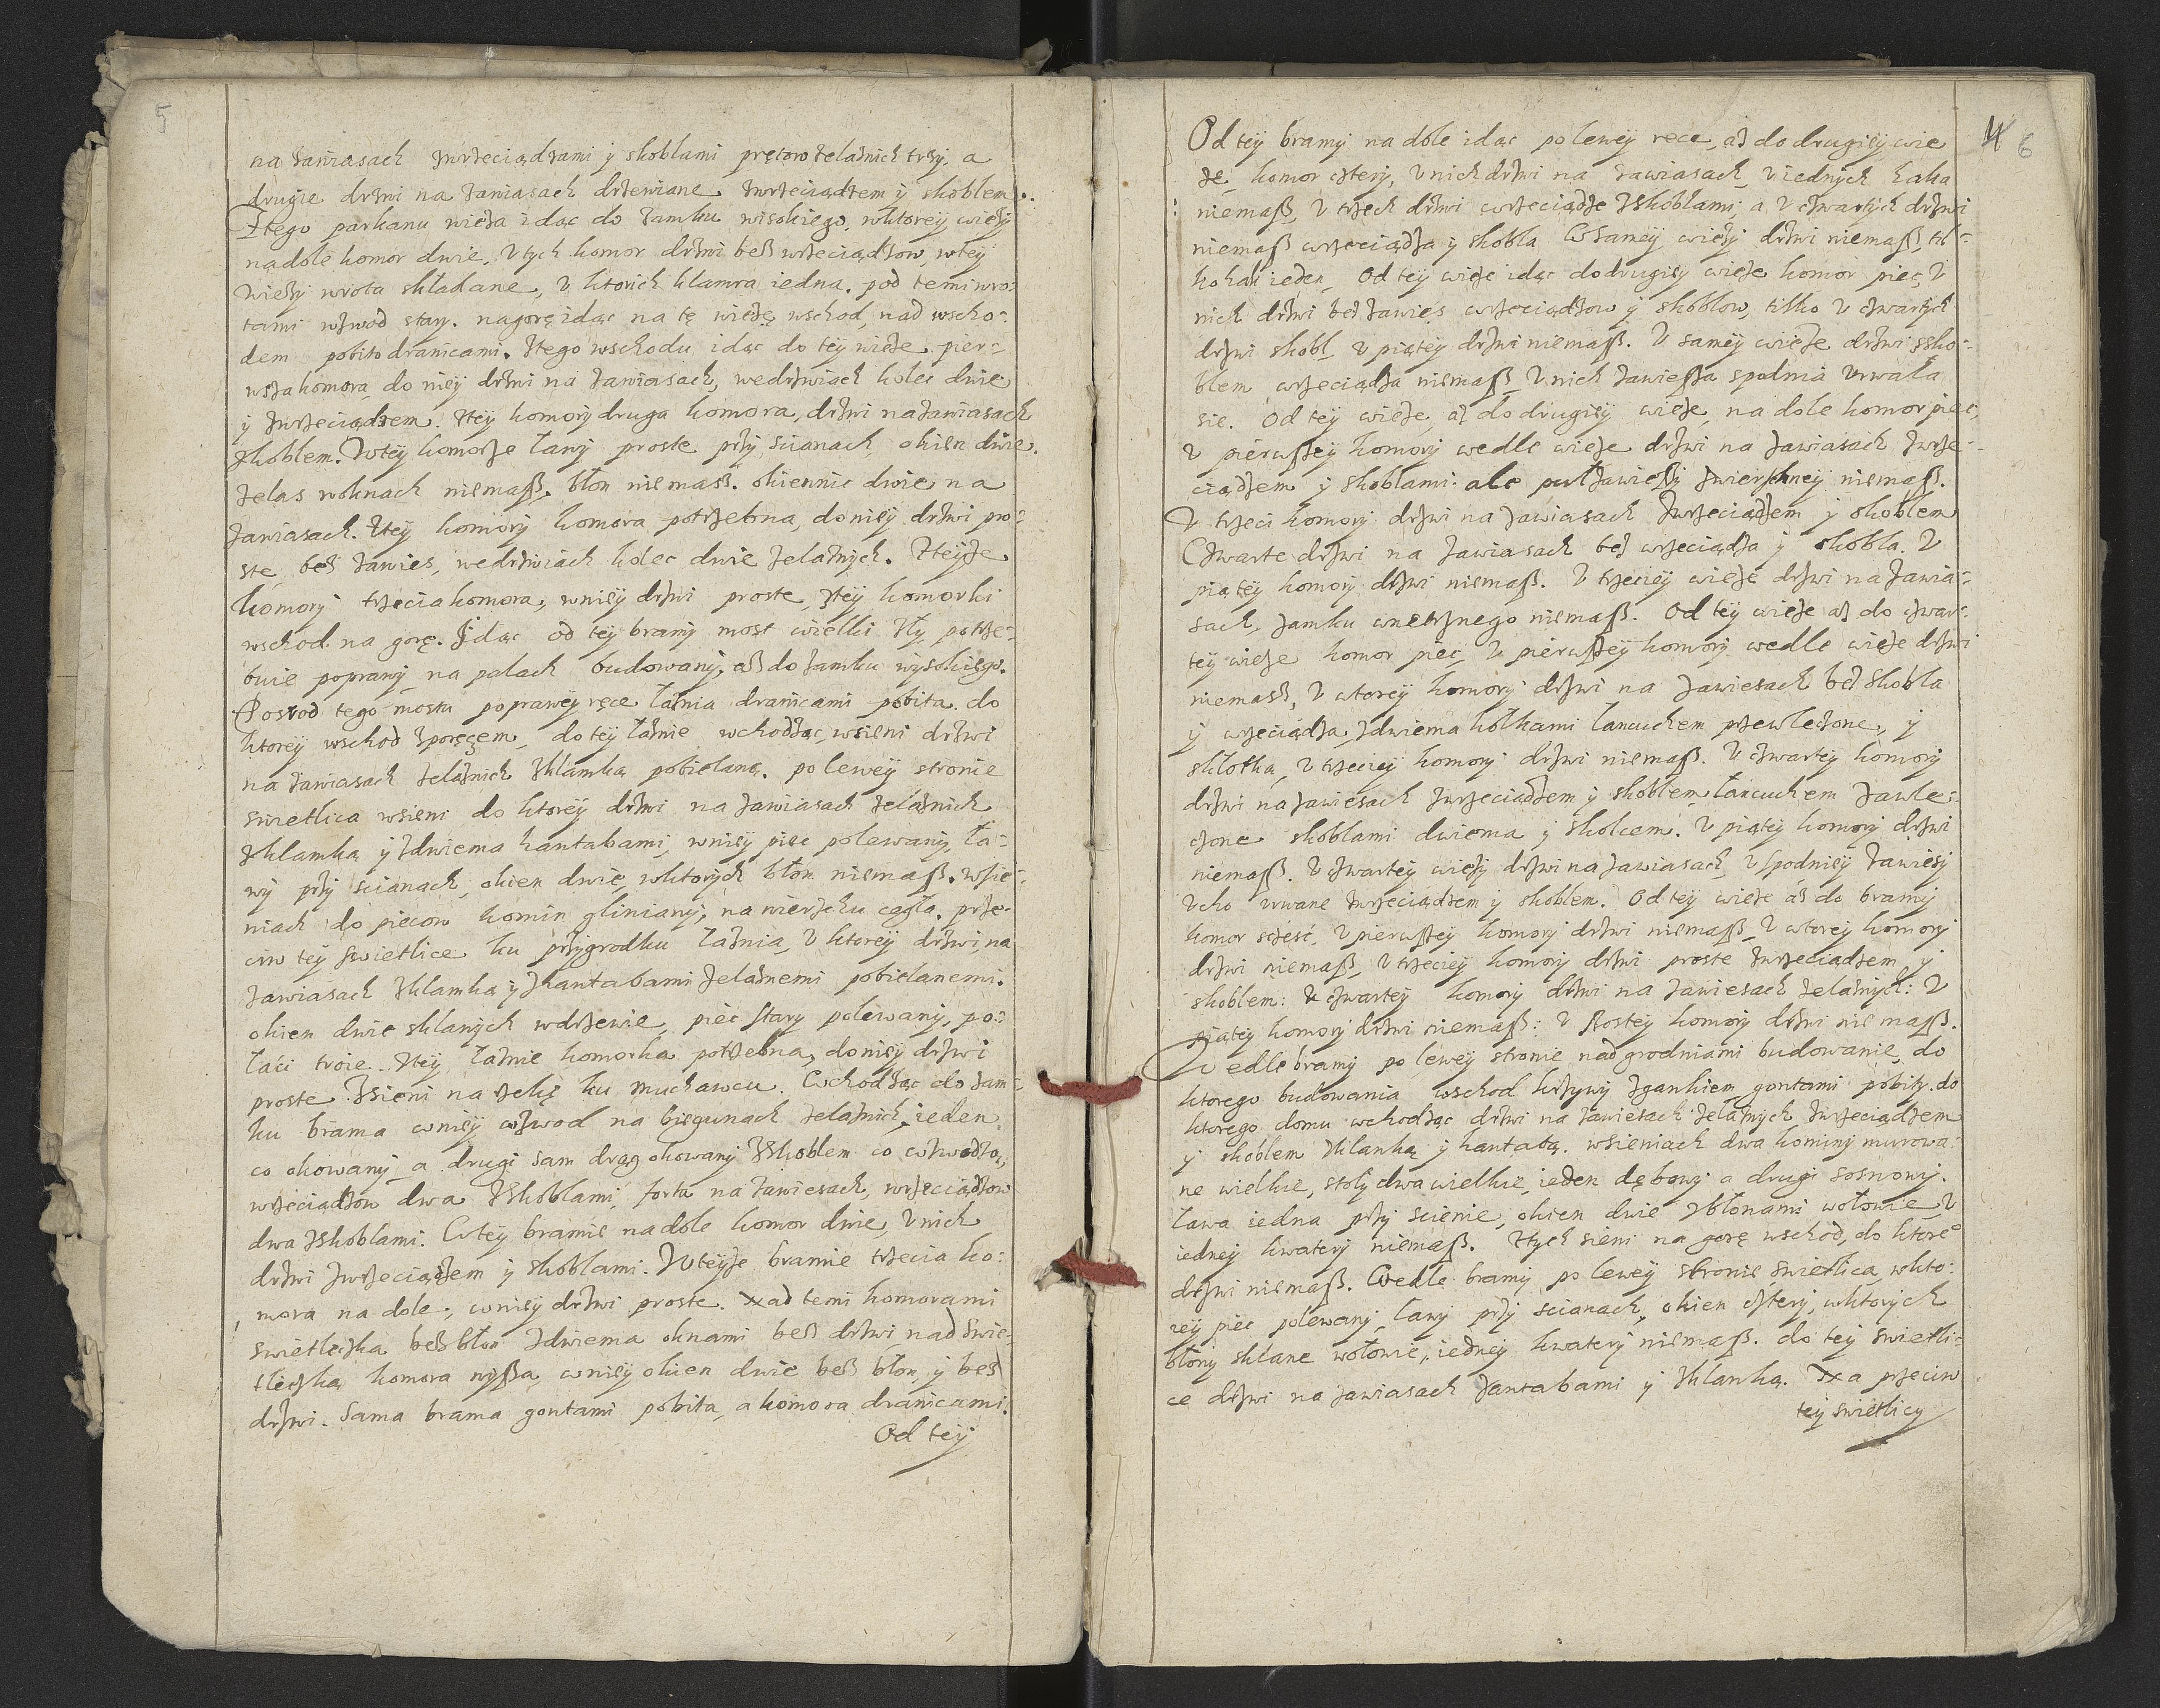 5
na zawiasach zwrzeciądzami y skoblami prętow zelaznich trzy, a
drugie drzwi na zawiasach drzewiane zwrzeciądzem y skoblem.
Ztego parkanu wieza idąc do zamku wisokiego, wktorey wiezy
nadole komor dwie, V tych komor drzwi bes wrzeciądzow, wtey
wiezy wrota składane, v ktorich klamra iedna. pod temi wro-
tami wzwod stary. nagorę idąc na tę wiezę wschod, nad wscho-
dem pobito dranicami. Ztego wschodu idąc do tey wieze pier-
wsza komora, do niey drzwi na zawiasach, wedrzwiach kolec dwie
y zwrzeciądzem. Ztey komory druga komora, drzwi nazawiasach
zkoblem. Wtey komorze ławy proste przy scianach, okien dwie.
zelas woknach niemasz, błon niemasz. okiennic dwie na
zawiasach. Ztey komory komora potrzebna, doniey drzwi pro-
ste, bes zawies, wedrzwiach kolec dwie zelaznych. Zteyze
komory trzecia komora, wniey drzwi proste, ztey komorki
wschod na gorę. Idąc od tey bramy most wielki zły potrze-
buie poprawy na palach budowany, asz do zamku wysokiego.
Posrod tego mostu poprawey ręce łaznia dranicami pobita. do
ktorey wschod zporęczem, do tey łaznie wchodząc, wsieni drzwi
na zawiasach zelaznich zklamką pobielaną. po lewey stronie
swietlica wsieni do ktorey drzwi na zawiasach zelaznich
zklamką y zdwiema hantabami, wniey piec polewany, ła-
wy przy scianach, okien dwie, wktorych błon niemasz. wsie-
niach do piecow komin gliniany, na wierzchu cegła. prze-
ciw tey swietlice ku przygrodku łaznia, V ktorey drzwi, na
zawiasach zklamką y zhantabami zelaznemi pobielanemi.
okien dwie sklanych wdrzewie, piec stary polewany, po-
łaci troie. Ztey łaznie komorka potrzebna, doniey drzwi
proste. Zsieni na rzekę ku Muchawcu. Wchodząc do zam-
ku brama wniey wzwod na biegunach zelaznich, ieden
co okowany a drugi sam drąg okowany zskoblem co wzwodzą,
wrzeciądzow dwa zskoblami, forta na zawiesach, wrzeciądzow
dwa zskoblami. Wtey bramie nadole komor dwie, V nich
drzwi zwrzeciądzem y skoblami. Wteyze bramie trzecia ko-
mora na dole, wniey drzwi proste. Nad temi komorami
swietleczka bez błon zdwiema oknami bez drzwi, nad swie-
tleczką komora nysza, wniey okien dwie bez błon, y bez
drzwi. Sama brama gontami pobita, a komora dranicami.
Od tey
4 6
Od tey bramy na dole idąc po lewey ręce, asz do drugiey wie
ze, komor cztery, V nich drzwi na zawiasach, V iednych haka
niemasz, V trzech drzwi wrzeciądze zskoblami, a V czwartych drzwi
niemasz wrzeciądza y skobla. Wsamey wiezy drzwi niemasz, til-
ko hak ieden. Od tey wieze idąc dodrugiey wieze komor pięc, V
nich drzwi bez zawies wrzeciądzow y skoblow, tilko V czwartych
drzwi skobl, V piątey drzwi niemasz. V samey wieze drzwi zsko-
blem, wrzeciądza niemasz, V nich zawiesza spodnia Vrwała
sie. Od tey wieze, asz do drugiey wieze, na dole komor pięc,
V pierwszey komory wedle wieze drzwi na zawiasach zwrze-
ciądzem y skoblami: ale pułzawiesy zwierzchney niemasz.
V trzeci komory drzwi na zawiasach zwrzeciądzem y skoblem
Czwarte drzwi na zawiasach bez wrzeciądza y skobla. V
piątey komory drzwi niemasz. V trzeciey wieze drzwi na zawia-
sach, zamku wnetrznego niemasz. Od tey wieze asz do czwar-
tey wieze komor pięc, V pierwszey komory wedle wieze drzwi
niemasz, V wtorey komory drzwi na zawiesach bez skobla
y wrzeciądza, zdwiema kołkami łancuchem przewleczone, y
skłotką, V trzeciey komory drzwi niemasz. V czwartey komory
drzwi na zawiesach zwrzeciądzem y skoblem łancuchem zawle-
czone skoblami dwiema y skolcem. V piątey komory drzwi
niemasz. V czwartey wiezy drzwi na zawiasach, V spodniey zawiesy
Vcho Vrwane zwrzeciądzem y skoblem. Od tey wieze asz do bramy
komor sczesc, V pierwszey komory drzwi niemasz, V wtorey komory
drzwi niemasz, V trzeciey komory drzwi proste zwrzeciądzem y
skoblem: V czwartey komory drzwi na zawiesach zelaznych: V
piątey komory drzwi niemasz: V szostey komory drzwi niemasz.
Wedle bramy po lewey stronie nad grodniami budowanie, do
ktorego budowania wschod krzywy zgankiem gontami pobity. do
ktorego domu wchodząc drzwi na zawiesach zelaznych zwrzeciądzem
y skoblem zklamką y hantabą. wsieniach dwa kominy murowa-
ne wielkie, stoły dwa wielkie, ieden dębowy a drugi sosnowy.
Ława iedna przy scienie, okien dwie zbłonami wołowie V
iedney kwatery niemasz. Ztych sieni na gorę wschod, do ktoreo
drzwi niemasz. Wedle bramy po lewey stronie swietlica, wkto-
rey piec polewany, ławy przy scianach, okien cztery, wktorych
błony sklane wołowie, iedney kwatery niemasz. do tey swietli-
ce drzwi na zawiasach zantabami y zklamką. Na przeciw
tey swietlicy